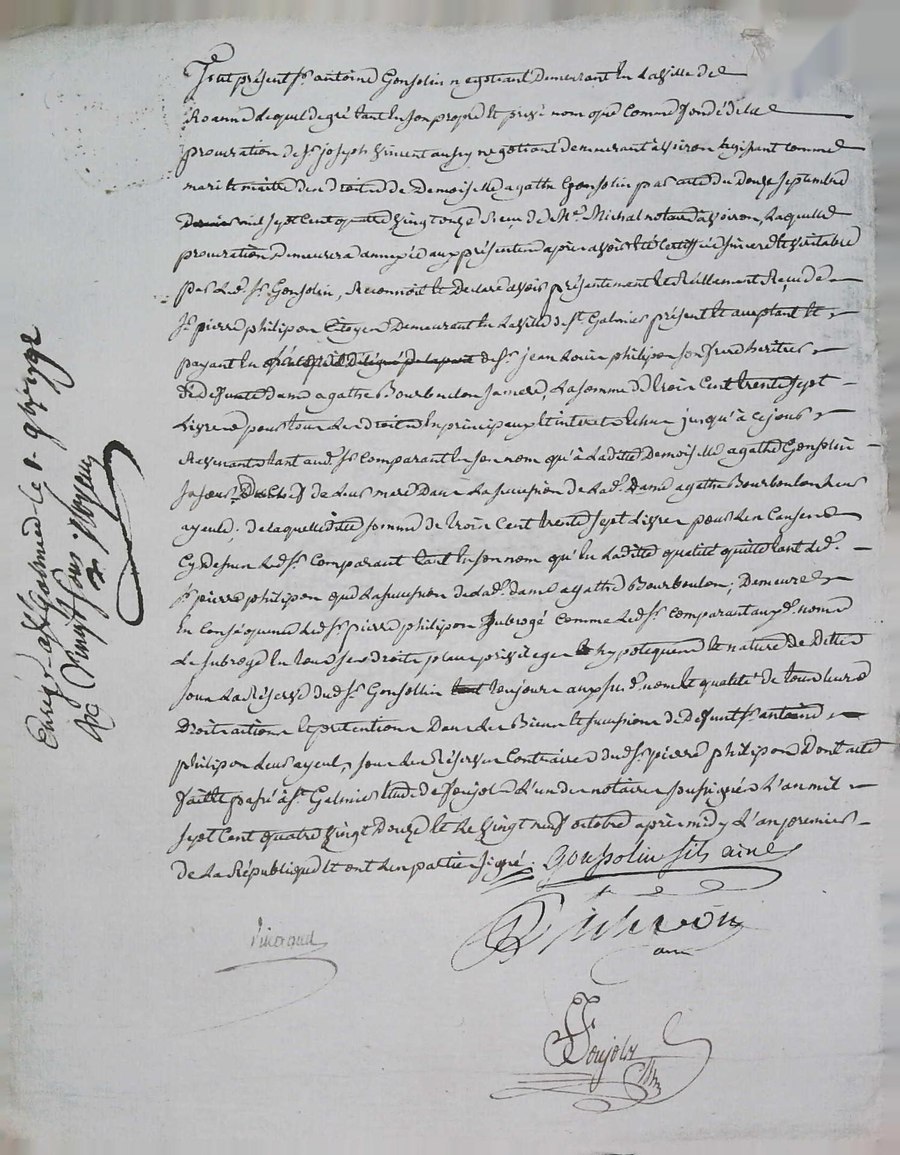 fut présent Sr antoine Gonsolin negotiant demeurant en la ville de
Roanne lequel de gré tant en son propre et privé nom que comme fondé de la
procuration de Sr joseph Vincent aussy negotiant demeurant à Voiron agissant comme
mari et maitre des droits de Demoiselle agathe Gonsolin par acte du Douze septembre
mil sept cent quatre vingt onze Reçu de Me. Michal notaire à Voiron, laquelle
procuration demeurera annexée aux présentes après avoir été certifiée sincere et veritable
par led. Sr. Gonsolin, Reconnoit et Declare avoir présentement et réellement Reçu de
Sr pierre philipon Citoyen Demeurant en la ville de St. Galmier présent et acceptant et
payant en de Sr jean Louis philipon son frere heritier
de defunte dame agathe Bourboulon sa mere, la somme de trois cent trente sept
Livres pour tous les droits en principaux et interets echus jusqu'à ce jour
Revenants tant aud. Sr. comparant en son nom qu'à ladite Demoiselle agathe Gonsolin
sa sœur, Du Chef de leur mere dans la succession de lad. Dame agathe Bourboulon leur
ayeule, de laquelle dite somme de trois cent trente sept Livres pour les causes
Cy dessus led Sr. comparant tant en son nom qu'en ladite qualité quitte tant led.
Sr. pierre philipon que la succession de lad. dame agathe Bourboulon; Demeure
en conséquence led Sr pierre philipon subrogé comme led Sr. comparant aux d. noms
le subroge en tous ses droits, place privileges et hypoteques et nature de dettes
sous la Réserve dud Sr. Gonsollin toujours aux sus d. noms et qualité de tous leurs
Droits actions et prétentions Dans les Biens et succession de defunt Sr. antoine
philipon leur ayeul, sous les Réserves contraires dud Sr. pierre philipon Dont acte
fait et passé à St. Galmier étude de Joujoly l'un des notaires soussignés L'an mil
sept cent quatre vingt Douze et le vingt neuf octobre après midy L'an premier
de la République et ont les parties signé.
Gonsolin fils ainé
Philipon
Joujoly
Enregé. à St Galmier le 8. 9bre 1792
Rç Vingt sous